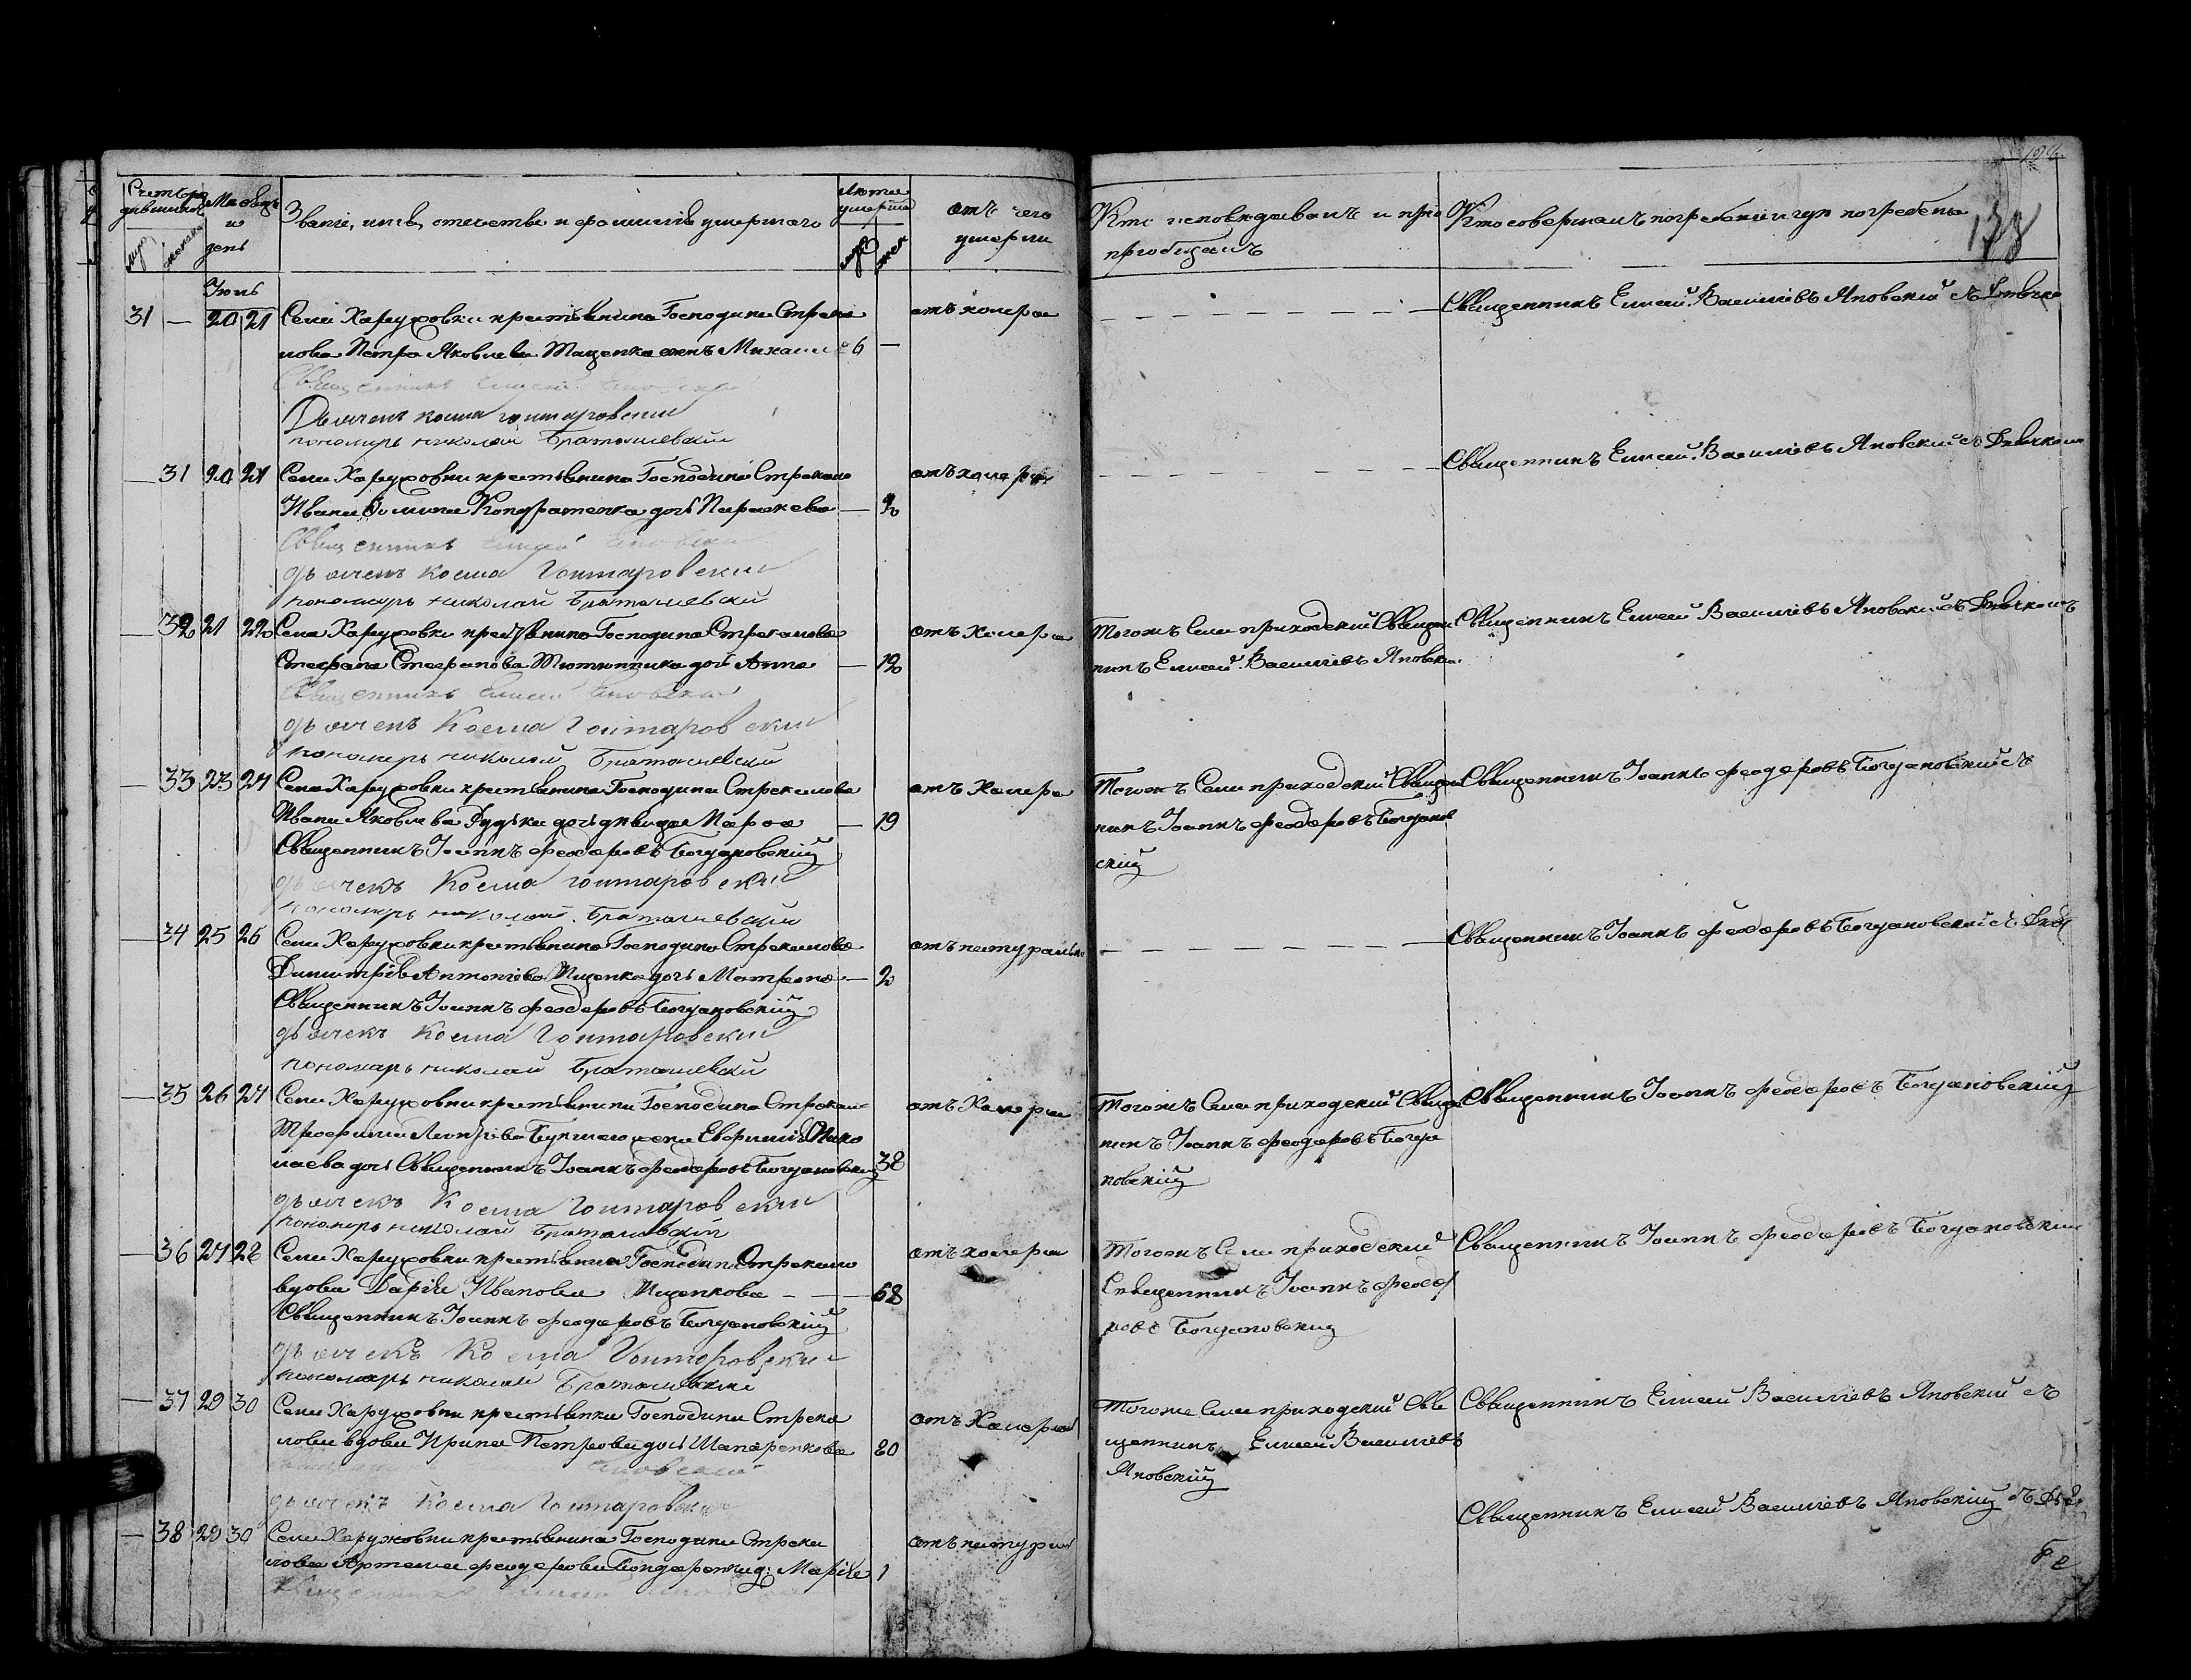 Счетъ
Мѣсяцъ
и
день
Званіе, имя, отечество и фамилія умершаго
Лѣта
умершаго
отъ чего
умерли
Кто исповѣдывалъ и прі
пріобщалъ
Кто совершалъ погребеніе и гдѣ погребены
муж
женска
муж
жен
Іюнь
31 — 20 21 Села Харуховки крестьянина Господина Стрека
лова Петра Яковлева Тищенка сынъ Михаилъ 6 —
отъ холеры
Священникъ Елисей Васильевъ Яновскій съ Дьячко
Священникъ Елисей Яновскій
Дьячекъ Косма Гонтаровскій
пономарь Николай Браташевскій
— 31 20 21 Села Харуховки крестьянина Господина Стрекало
Ивана Кондратенка дочь Параскева — 2
отъ холеры
Священникъ Елисей Васильевъ Яновскій съ Дьячкомъ
Священникъ Елисей Яновскій
дьячекъ Косма Гонтаровскій
пономарь Николай Браташевскій
— 32 21 22 Села Харуховки крестьянина Господина Стрекалова
Стефана Стефанова Тютюнника дочь Анна — 12
отъ Холеры
Тогожъ Села приходскій Священ
никъ Елисей Васильевъ Яновскій
Священникъ Елисей Васильевъ Яновскій съ Дьячкомъ
Священникъ Елисей Яновскій
дьячекъ Косма Гонтаровскій
пономарь Николай Браташевскій
— 33 23 24 Села Харуховки крестьянина Господина Стрекалова
Ивана Яковлева Дудки дочь дѣвица Марфа — 19
отъ Холеры
Тогожъ Села приходскій Священ
никъ Іоаннъ Феодоровъ Богданов
скій
Священникъ Іоаннъ Феодоровъ Богдановскій съ
Священникъ Іоаннъ Феодоровъ Богдановскій
дьячекъ Косма Гонтаровскій
пономарь Николай Браташевскій
— 34 25 26 Села Харуховки крестьянина Господина Стрекалова
Димитрія Антоніева Ищенка дочь Матрона — 2
отъ натуральн
Священникъ Іоаннъ Феодоровъ Богдановскій съ Дьяч
Священникъ Іоаннъ Феодоровъ Богдановскій
дьячекъ Косма Гонтаровскій
пономарь Николай Браташевскій
— 35 26 27 Села Харуховки крестьянина Господина Стрекал
Трофима жена Евфимія Нико
лаева дочь 38
отъ Холеры
Священникъ Іоаннъ Феодоровъ Богдановскій
Тогожъ Села приходскій Священ
никъ Іоаннъ Феодоровъ Богда
новскій
Священникъ Іоаннъ Феодоровъ Богдановскій
дьячекъ Косма Гонтаровскій
пономарь Николай Браташевскій
— 36 27 28 Села Харуховки крестьянка Господина Стрекало
вдова Дарія Иванова Ищенкова — — 68
отъ холеры
Тогожъ Села приходскій
Священникъ Іоаннъ Феодо
ровъ Богдановскій
Священникъ Іоаннъ Феодоровъ Богдановскій
Священникъ Іоаннъ Феодоровъ Богдановскій
дьячекъ Косма Гонтаровскій
пономарь Николай Браташевскій
— 37 29 30 Села Харуховки крестьянки Господина Стрека
лова вдова Ирина Петрова дочь Шапаренкова 80
отъ Холеры
Тогоже Села приходскій Свя
щенникъ Елисей Васильевъ
Яновскій
Священникъ Елисей Васильевъ Яновскій съ
Яновскій
дьячекъ Косма Гонтаровскій
— 38 29 30 Села Харуховки крестьянина Господина Стрека
лова Артема Феодорова Бондаренка д: Марія 1
отъ натурал
Священникъ Елисей Васильевъ Яновскій съ Дья
Священникъ Елисей